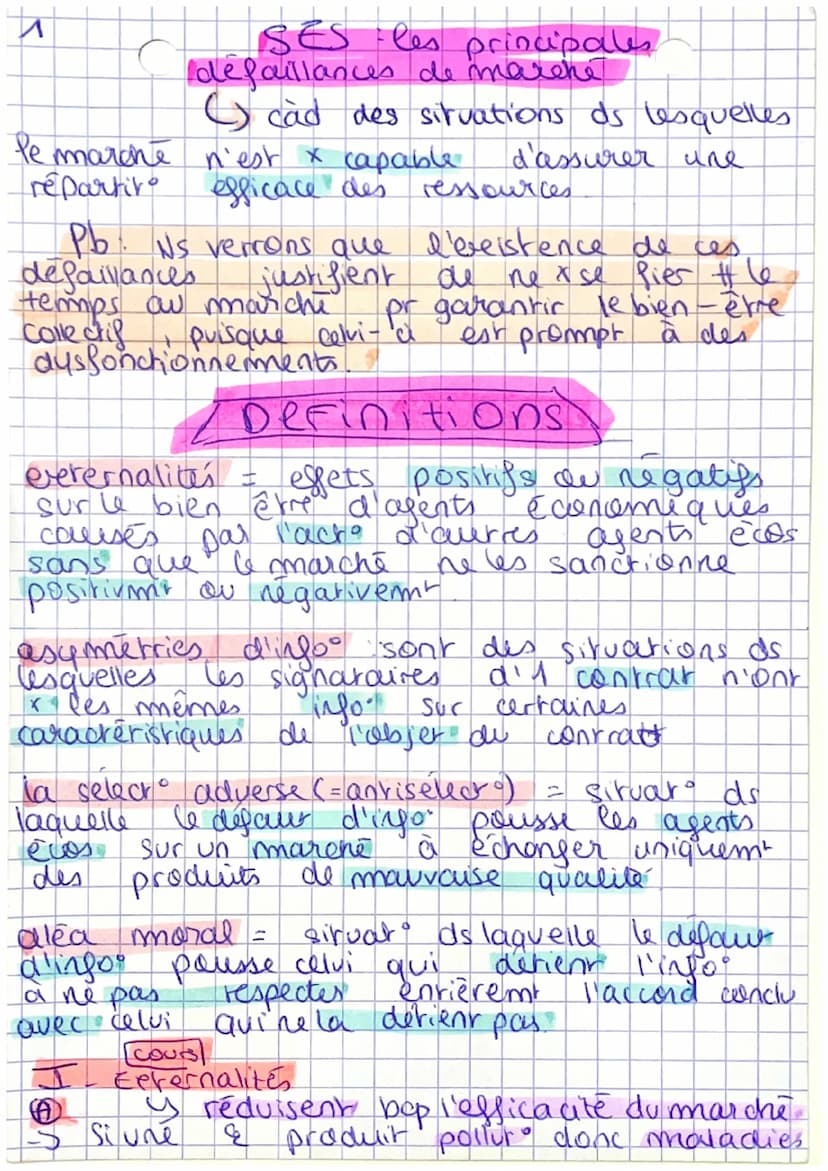 1
SES : les principales
défaillances de marché
↳ càd des situations ds lesquelles
le marché n'est x capable d'assurer une
répartit° efficace des ressources.
Pb : Ns verrons que l'existence de ces
défaillances justifient de ne x se fier # le
temps au marché pr garantir le bien-être
collectif, puisque celui-ci est prompt à des
dysfonctionnements.
Definitions
externalités = effets positifs ou négatifs
sur le bien être d'agents économiques
causés par l'act° d'autres agents écos
sans que le marché ne les sanctionne
positivmt ou négativemt
asymétries d'info° : sont des situations ds
lesquelles les signataires d'1 contrat n'ont
x les mêmes info° sur certaines
caractéristiques de l'objet du contrat
la sélect° adverse (=antisélect°) = situat° ds
laquelle le défaut d'info° pousse les agents
écos sur un marché à échanger uniquemt
des produits de mauvaise qualité
aléa moral = situat° ds laquelle le défaut
d'info° pousse celui qui détient l'info°
à ne pas respecter entièremt l'accord conclu
avec celui qui ne la détient pas.
cours
I - Externalités
A ↳ réduisent bcp l'efficacité du marché.
→ Si une & produit pollut° donc maladies